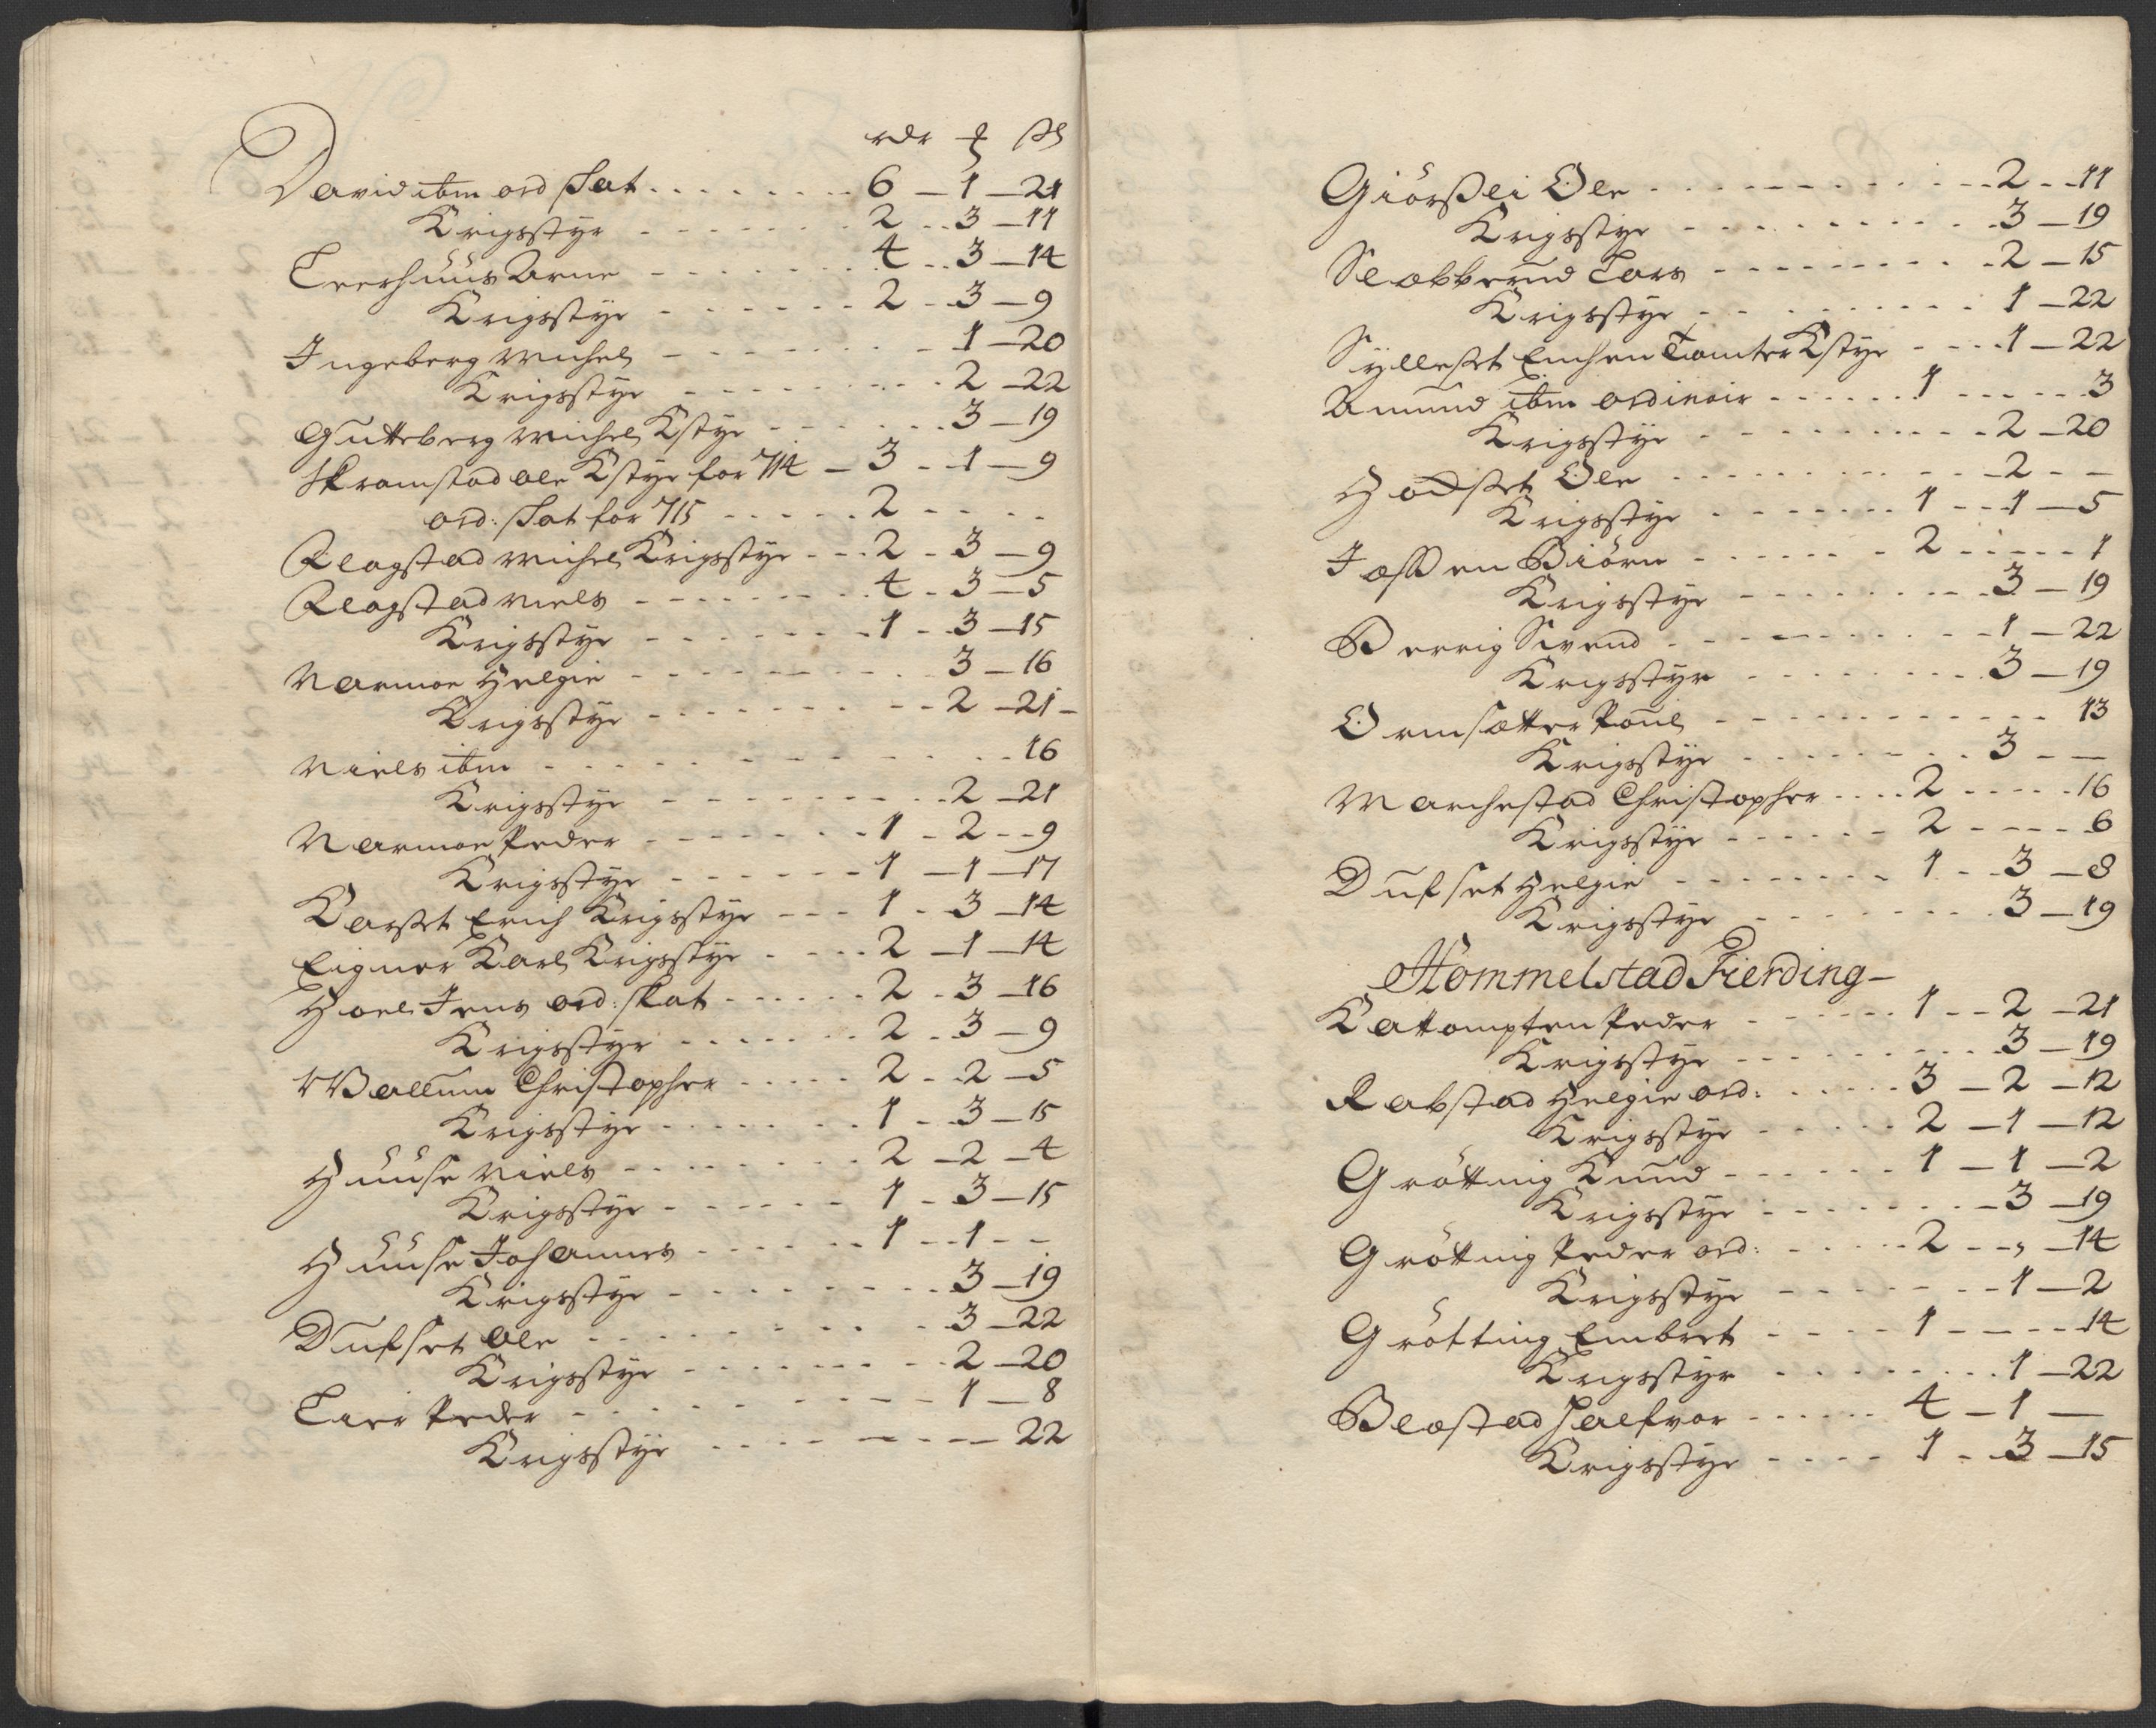 rdr ß
David ibm ord skat 6 - 1 - 21
Krigsstyr 2 - 3 - 11
Leerhuus Arne 4 - 3 - 14
Krigsstyr 2 - 3 - 9
Ingeberg Michel 1 - 20
Krigsstyr 2 - 22
Gutteberg Michel Kstyr 3 - 19
Skramstad Ole Kstyr for 714 - 3 - 1 - 9
ord: skat for 715 2
Flagstad Michel Krigsstyr 2 - 3 - 9
Flagstad Niels 4 - 3 - 5
Krigsstyr 1 - 3 - 15
Narmoe Helgie 3 - 16
Krigsstyr 2 - 21 -
Niels ibm 16
Krigsstyr 2 - 21
Narmoe Peder 1 - 2 - 9
Krigsstyr 1 - 1 - 17
Karset Erich Krigsstyr 1 - 3 - 14
Eigner Karl Krigsstyr 2 - 1 - 14
Hoel Jens ord: skat 2 - 3 - 16
Krigsstyr 2 - 3 - 9
Wallum Christopher 2 - 2 - 5
Krigsstyr 1 - 3 - 15
Huuse Niels 2 - 2 - 4
Krigsstyr 1 - 3 - 15
Huuse Johannes 1 - 1 - -
Krigsstyr 3 - 19
Dufset Ole 3 - 22
Krigsstyr 2 - 20
Lier Peder 1 - 8
Krigsstyr 22
Giørslei Ole 2 - 11
Krigsstyr 3 - 19
Slabberud Lars 2 - 15
Krigsstyr 1 - 22
Sylleset Kstyr 1 - 22
Amund ibm ordinair 1 - 3
Krigsstyr 2 - 20
Hodset Ole 2 - -
Krigsstyr 1 - 1 - 5
Jessen Biørn 2 - 1
Krigsstyr 3 - 19
Berrig Svend 1 - 22
Krigsstyr 3 - 19
Ormsætter Poul 13
Krigsstyr 3 - -
Marchestad Christopher 2 - 16
Krigsstyr 2 - 6
Dufset Helgie 1 - 3 - 8
Krigsstyr 3 - 19
Hommelstad Fierding -
Kattompten Peder 1 - 2 - 21
Krigsstyr 3 - 19
Rabstad Helgie ord: 3 - 2 - 12
Krigsstyr 2 - 1 - 12
Grøtting Knud 1 - 1 - 2
Krigsstyr 3 - 19
Grøtting Peder ord: 2 - , - 14
Krigsstyr 1 - 2
Grøtting Embret 1 - 14
Krigsstyr 1 - 22
Blæstad Halfvor 4 - 1 -
Krigsstyr 1 - 3 - 15